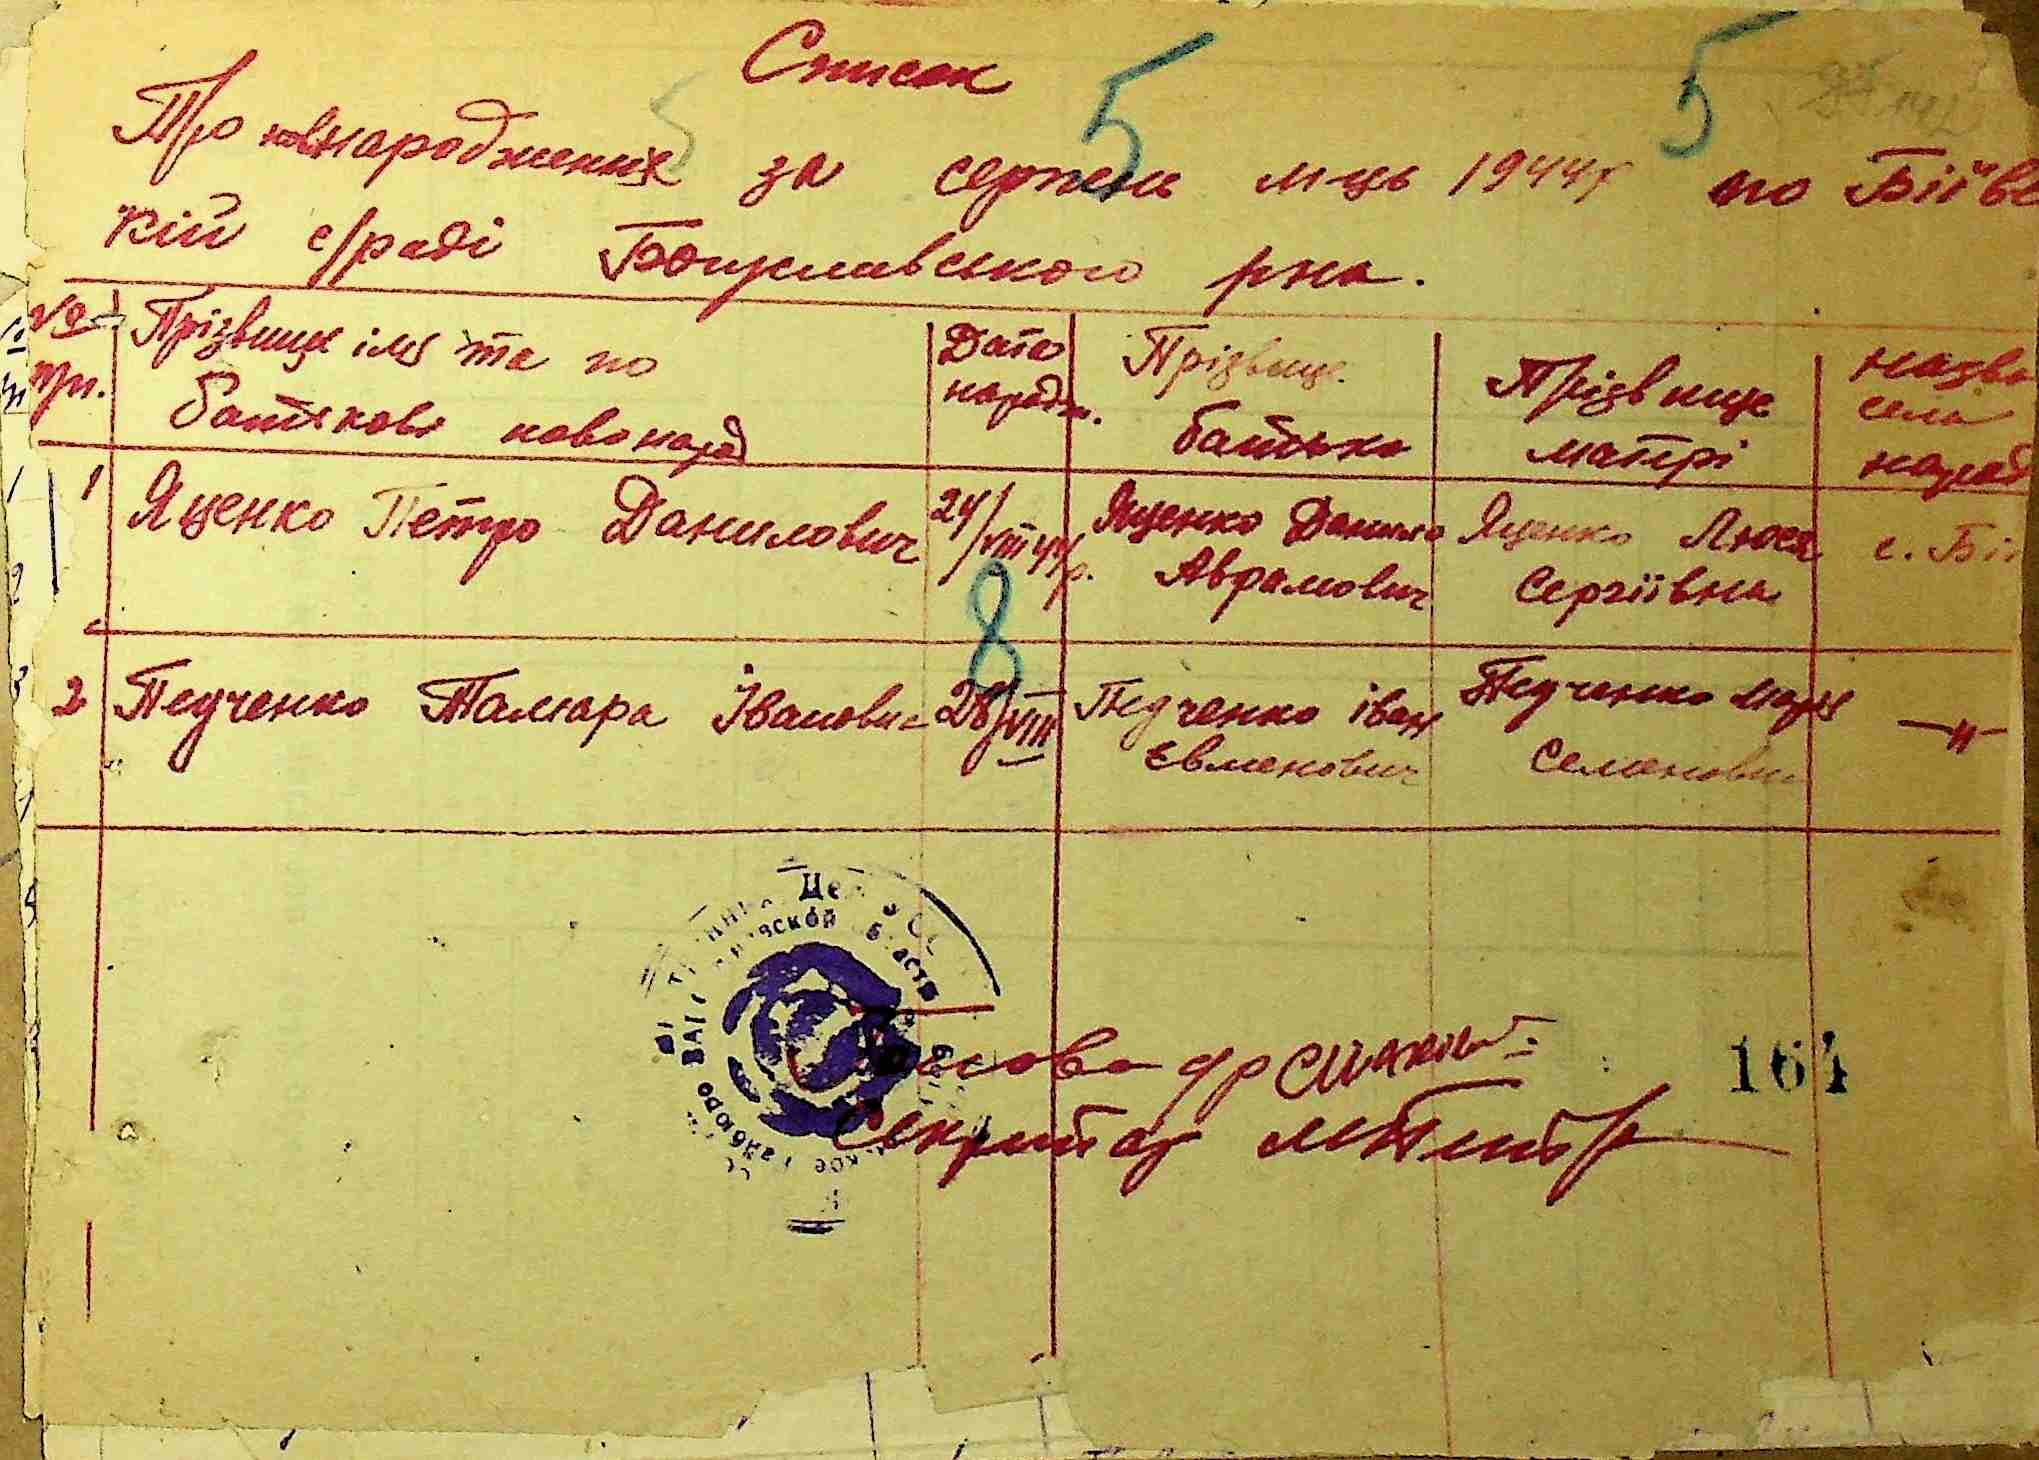 Список
Про новнароджених за серпень м-ць 1944 р по Біївс
кій с/раді Богуславського р-на.
№
п/п. Прізвище імя та по
батькові новонарод Дата
народж. Прізвище
батька Прізвище
матері назва
села
народ
1 Яценко Петро Данилович 24/VIII 44 р. Яценко Данило
Аврамович Яценко Люся
Сергіївна с. Бії
2 Педченко Тамара Іванови 28/VIII Педченко Іван
Євменович Педченко Марія
Семенови —"—
5 5
8
Голова с/р
Секритар
164